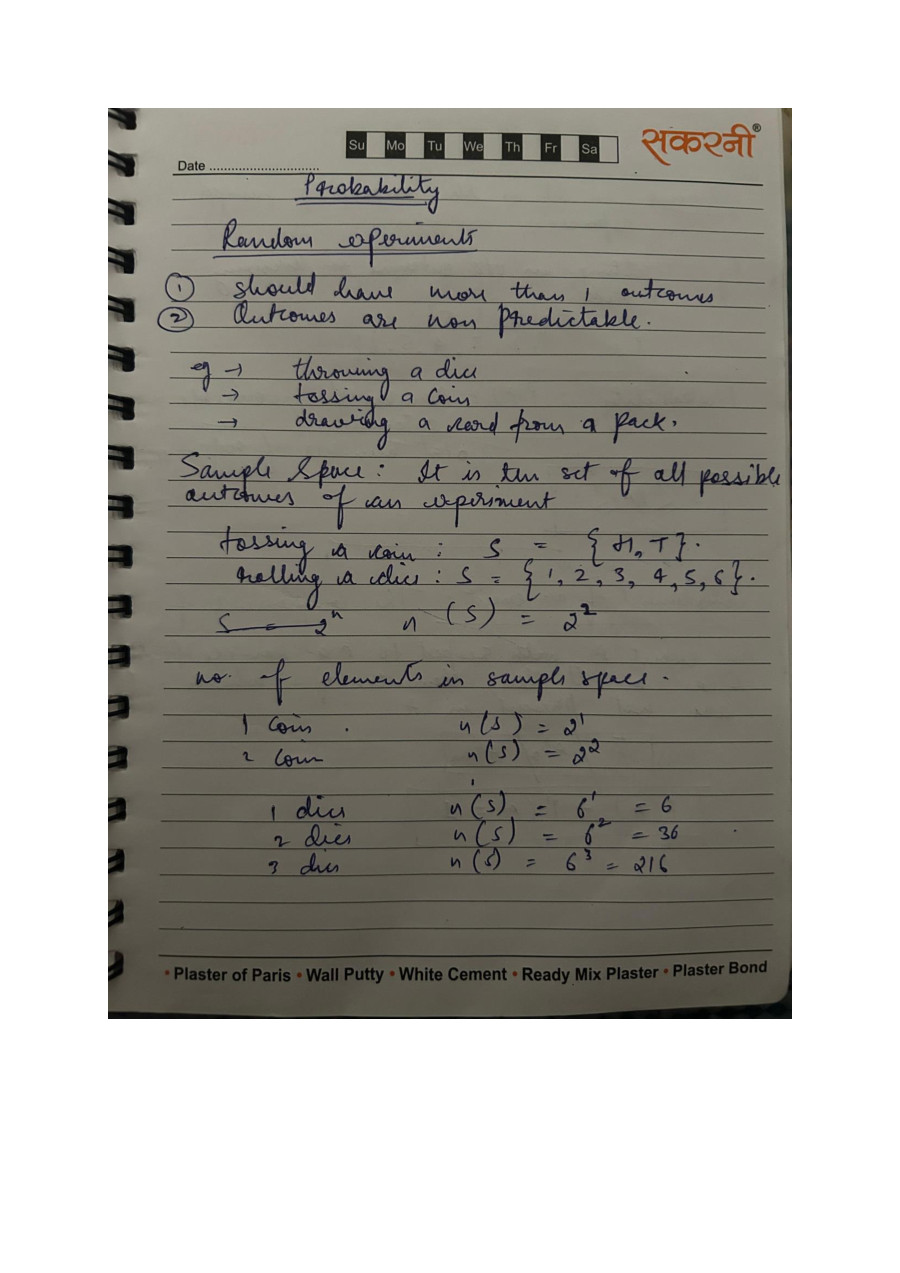 Su Mo Tu We Th Fr Sa
सकरनी®
Date ..............................
Probability
Random experiments
① should have more than 1 outcomes
② Outcomes are non predictable.
eg → throwing a dice
→ tossing a coin
→ drawing a card from a pack.
Sample Space : It is the set of all possible
outcomes of an experiment
tossing a coin : S = { H, T }.
rolling a dice : S = { 1, 2, 3, 4, 5, 6 }.
S = 2ⁿ n (S) = 2²
no. of elements in sample space.
1 coin . n(S) = 2¹
2 coin n(S) = 2²
1 dice n(S) = 6¹ = 6
2 dice n(S) = 6² = 36
3 dice n(S) = 6³ = 216
• Plaster of Paris • Wall Putty • White Cement • Ready Mix Plaster • Plaster Bond